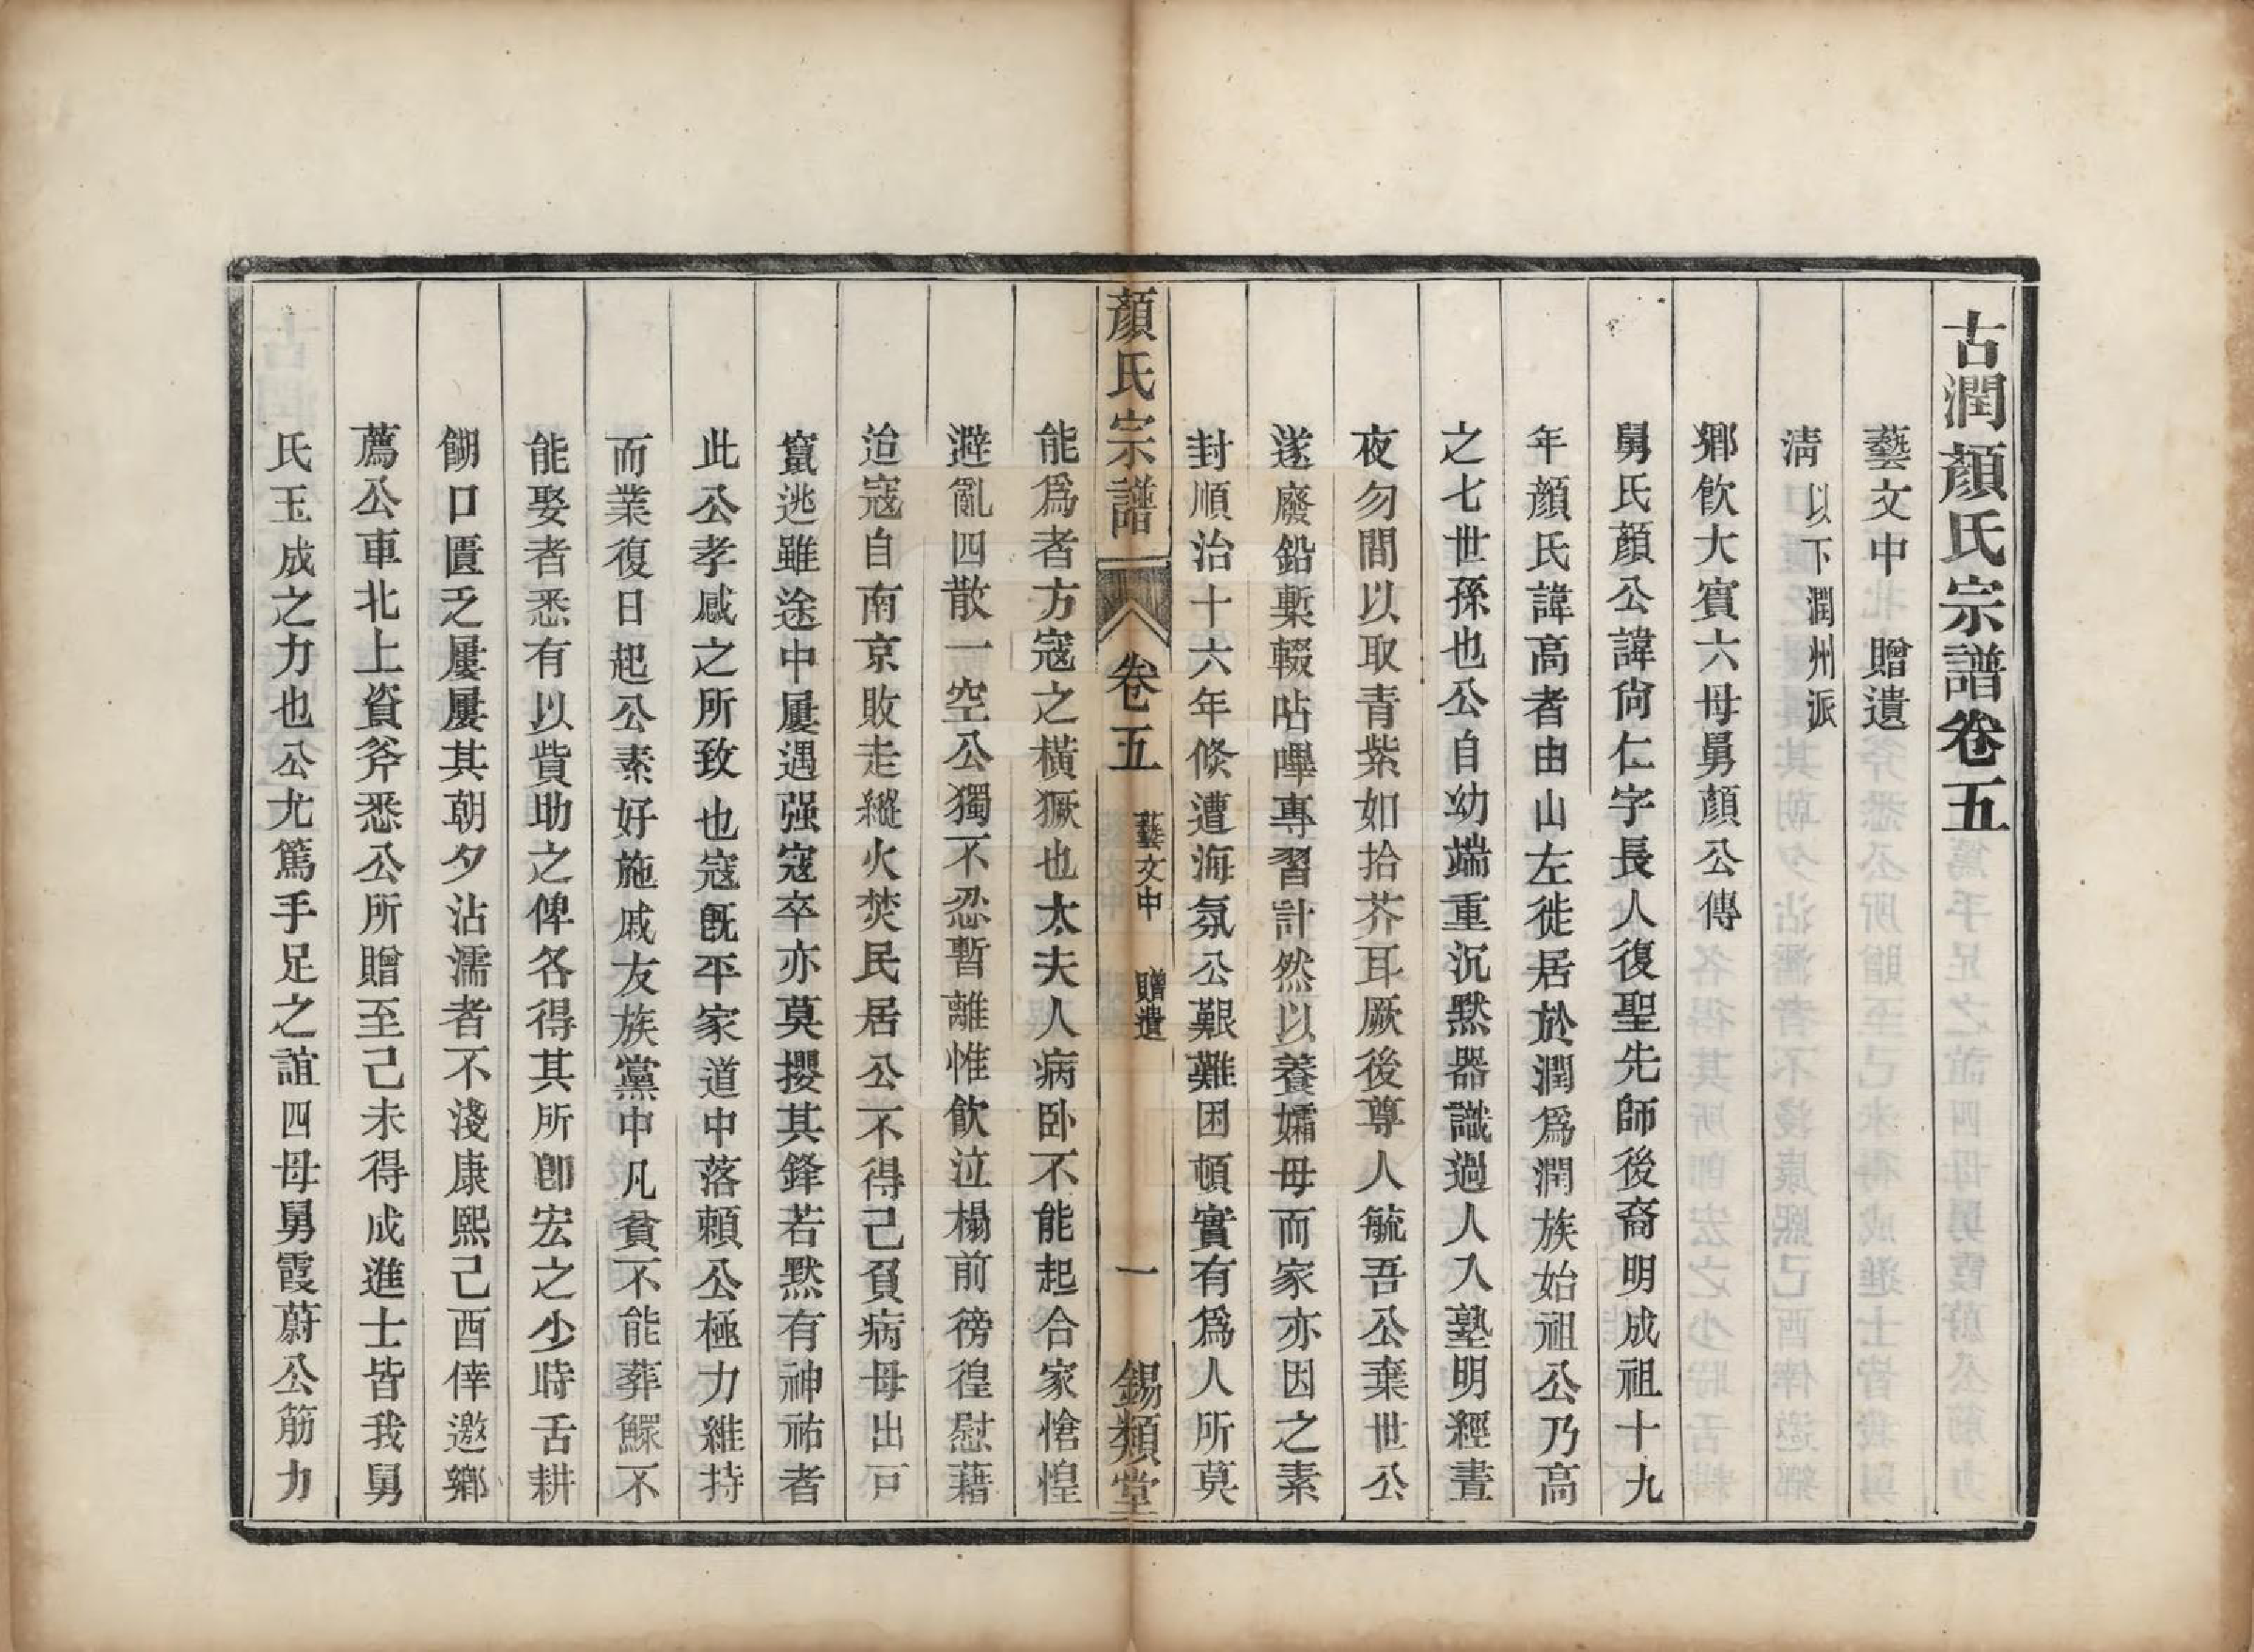 古潤顏氏宗譜卷五
藝文中　贈遺
清　以下潤州派
鄉飲大賓六母舅顏公傳
舅氏顏公諱尙仁字長人復聖先師後裔明成祖十九
年顏氏諱高者由山左徙居於潤爲潤族始祖公乃高
之七世孫也公自幼端重沉默器識過人入塾明經晝
夜勿間以取青紫如拾芥耳厥後尊人毓吾公棄世公
遂廢鉛槧輟呫嗶專習計然以養孀母而家亦因之素
封順治十六年倐遭海氛公艱難困頓實有爲人所莫
顏氏宗譜　卷五　藝文中　贈遺　一　錫類堂
能爲者方寇之橫獗也太夫人病卧不能起合家愴惶
避亂四散一空公獨不忍暫離惟飮泣榻前徬徨慰藉
迨寇自南京敗走縱火焚民居公不得已負病母出
竄逃雖途中屢遇强寇卒亦莫攖其鋒若默有神祐者
此公孝感之所致也寇旣平家道中落賴公極力維持
而業復日起公素好施戚友族黨中凡貧不能葬鰥不
能娶者悉有以貲助之俾各得其所卽宏之少時舌耕
餬口匱乏屢屢其朝夕沾濡者不淺康熙己酉倖邀鄉
薦公車北上資斧悉公所贈至己未得成進士皆我舅
氏玉成之力也公尤篤手足之誼四母舅霞蔚公筋力